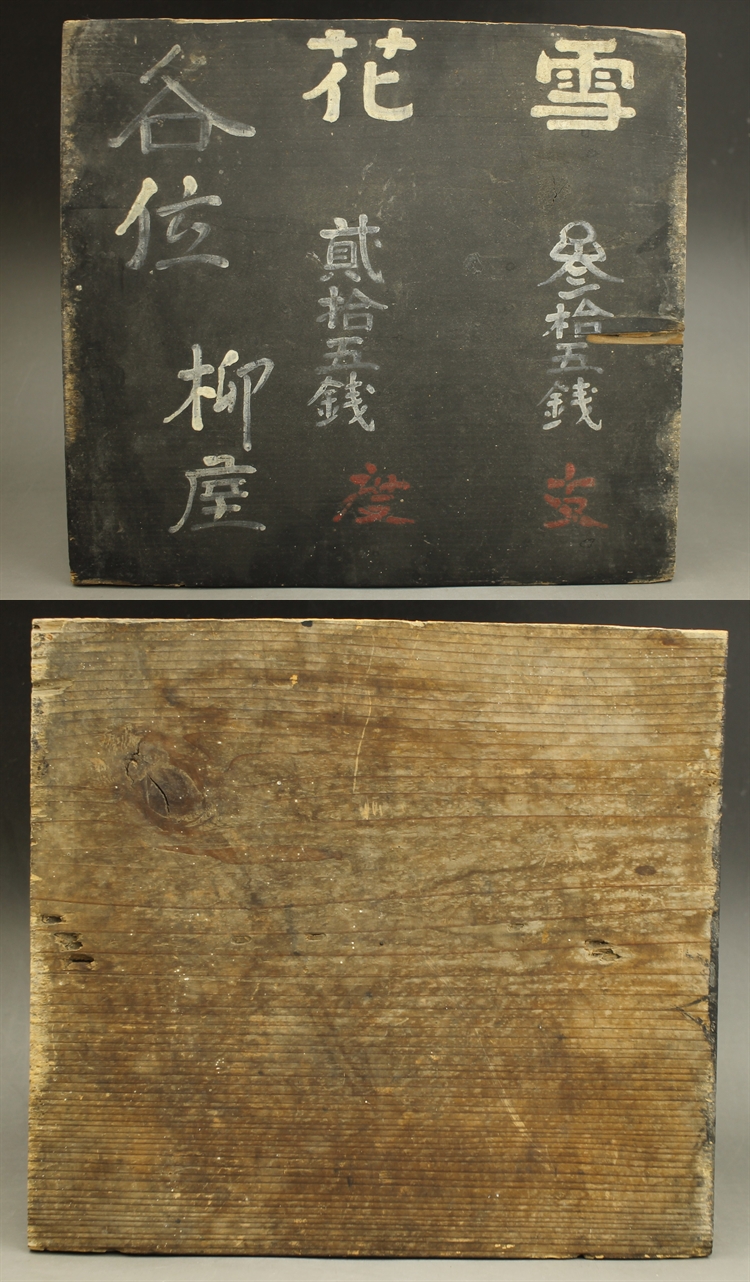 雪 叁拾五銭 支
花 貳拾五銭 度
各位 柳屋